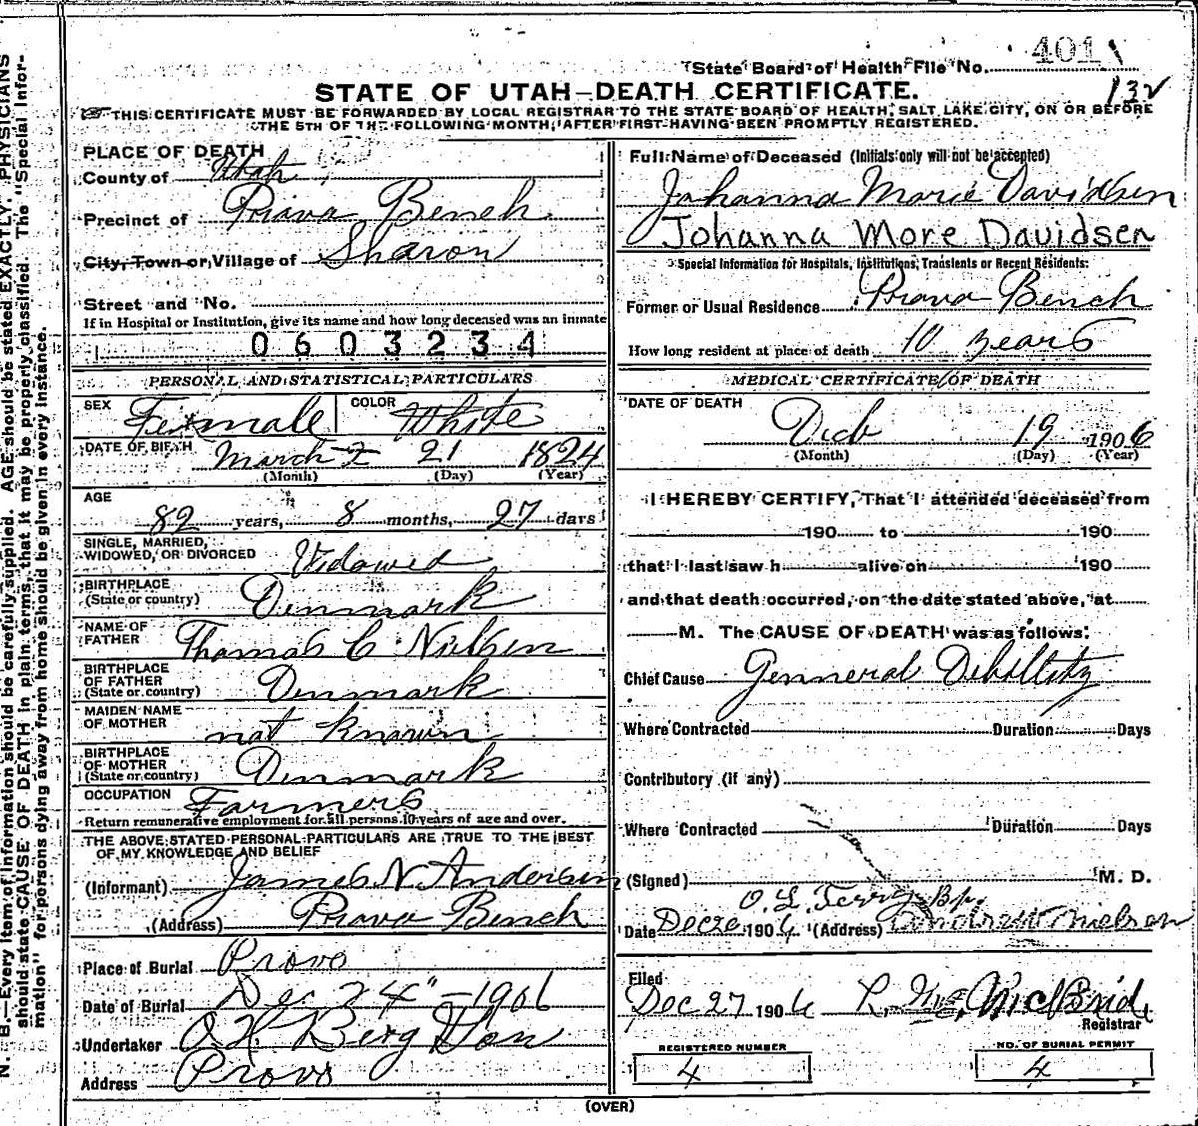 N. B.—Every item of information should be carefully supplied. AGE should be stated EXACTLY. PHYSICIANS
should state CAUSE OF DEATH in plain terms, that it may be properly classified. The "Special Infor-
mation" for persons dying away from home should be given in every instance.
State Board of Health File No. 401
132
STATE OF UTAH—DEATH CERTIFICATE.
THIS CERTIFICATE MUST BE FORWARDED BY LOCAL REGISTRAR TO THE STATE BOARD OF HEALTH, SALT LAKE CITY, ON OR BEFORE
THE 5TH OF THE FOLLOWING MONTH, AFTER FIRST HAVING BEEN PROMPTLY REGISTERED.
PLACE OF DEATH
County of Utah
Precinct of Provo Bench
City, Town or Village of Sharon
Street and No.
If in Hospital or Institution, give its name and how long deceased was an inmate
0603234
PERSONAL AND STATISTICAL PARTICULARS
SEX Female COLOR White
DATE OF BIRTH March 21 1824
(Month) (Day) (Year)
AGE
82 years, 8 months, 27 days
SINGLE, MARRIED,
WIDOWED, OR DIVORCED Vidowed
BIRTHPLACE
(State or country) Denmark
NAME OF
FATHER Thomas C. Nielsen
BIRTHPLACE
OF FATHER
(State or country) Denmark
MAIDEN NAME
OF MOTHER not known
BIRTHPLACE
OF MOTHER
(State or country) Denmark
OCCUPATION Farmers
Return remunerative employment for all persons 10 years of age and over.
THE ABOVE STATED PERSONAL PARTICULARS ARE TRUE TO THE BEST
OF MY KNOWLEDGE AND BELIEF
(Informant) James N. Andersen
(Address) Provo Bench
Place of Burial Provo
Date of Burial Dec 24" - 1906
Undertaker O. H. Berg Son
Address Provo
Full Name of Deceased (Initials only will not be accepted)
Johanna Marie Davidsen
Johanna More Davidsen
Special Information for Hospitals, Institutions, Transients or Recent Residents:
Former or Usual Residence Provo Bench
How long resident at place of death 10 years
MEDICAL CERTIFICATE OF DEATH
DATE OF DEATH
Dec 19 1906
(Month) (Day) (Year)
I HEREBY CERTIFY, That I attended deceased from
190 to 190
that I last saw h alive on 190
and that death occurred, on the date stated above, at
M. The CAUSE OF DEATH was as follows:
Chief Cause Genneral Debillity
Where Contracted Duration Days
Contributory (if any)
Where Contracted Duration Days
(Signed) M. D.
O. L. Terry Bp.
Date Dec 20 1906 (Address) Nielson
Filed
Dec 27 1906 McBride
Registrar
REGISTERED NUMBER
4
NO. OF BURIAL PERMIT
4
(OVER)